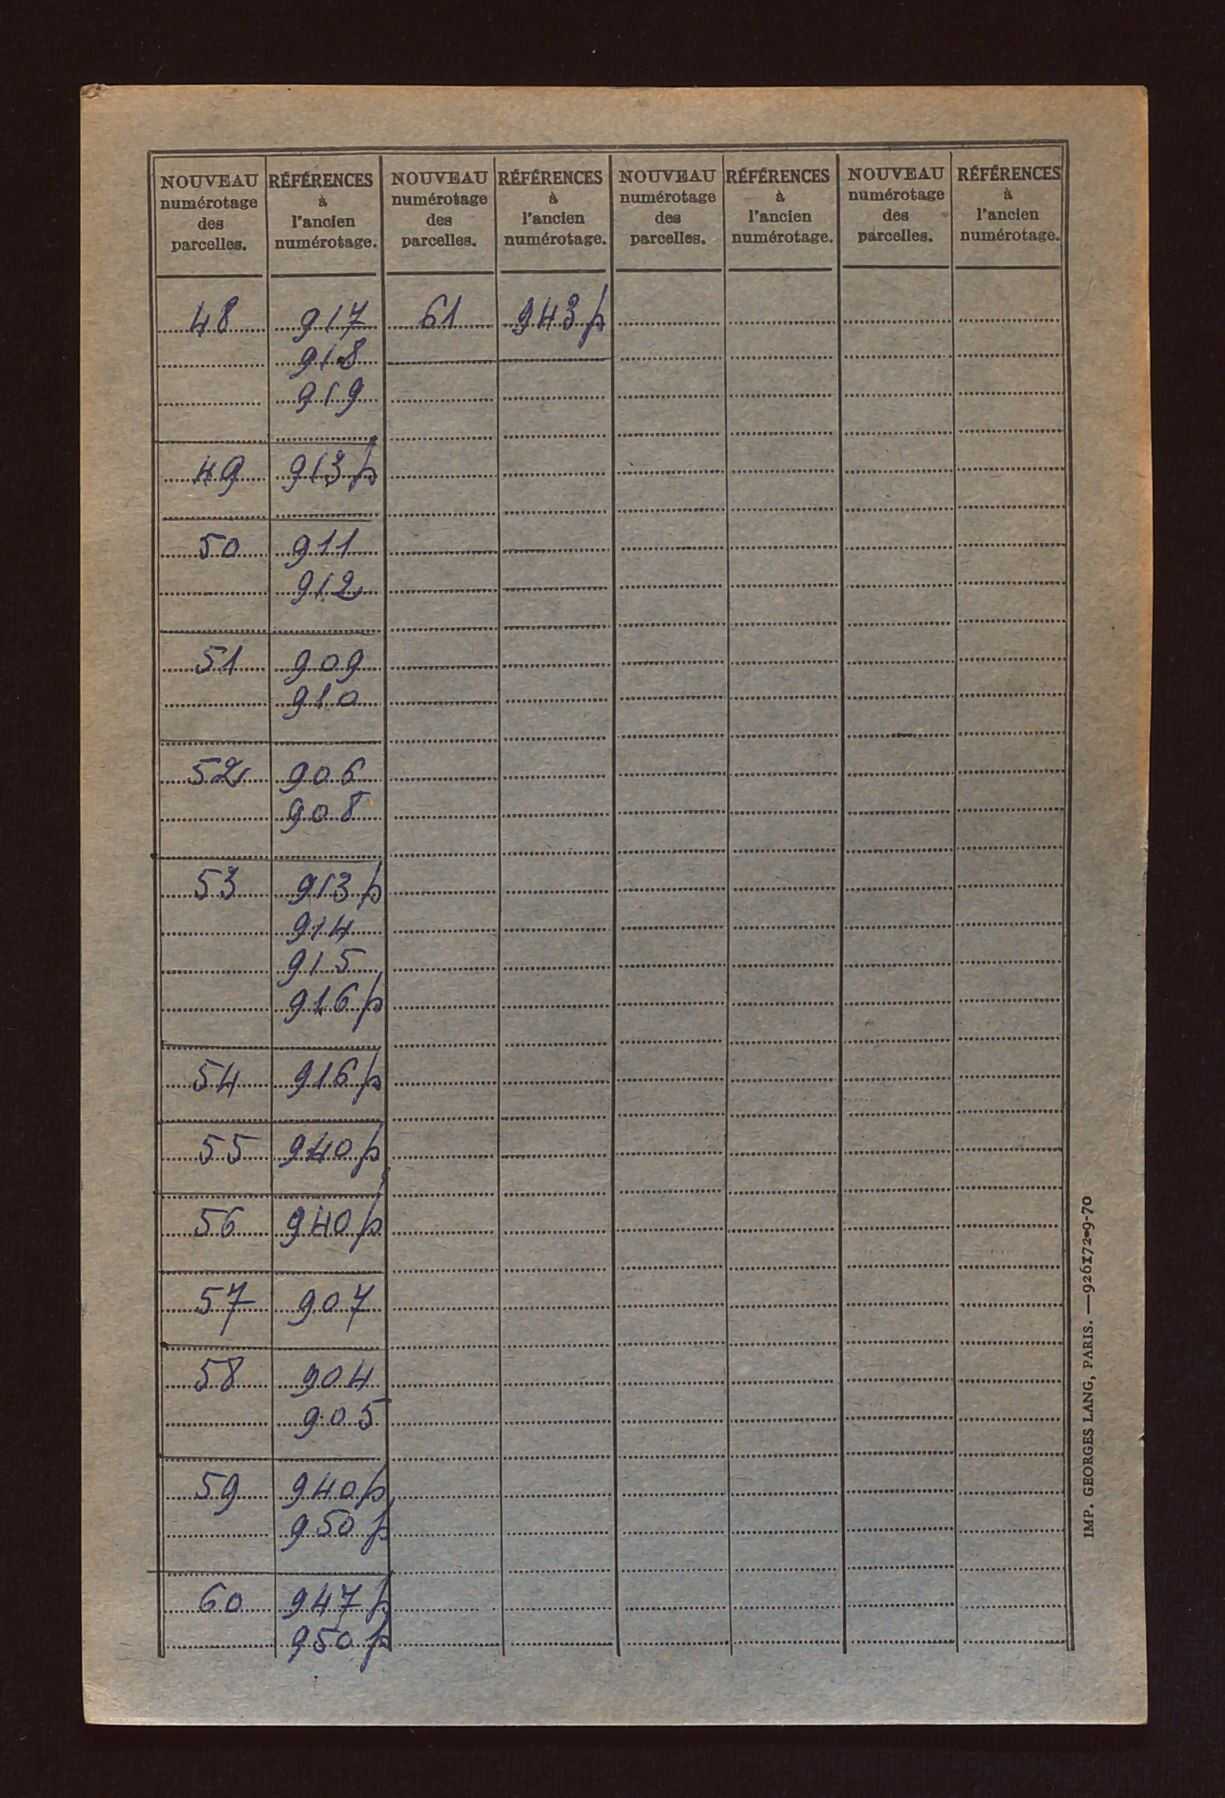 NOUVEAU numérotage des parcelles. RÉFÉRENCES à l'ancien numérotage. NOUVEAU numérotage des parcelles. RÉFÉRENCES à l'ancien numérotage. NOUVEAU numérotage des parcelles. RÉFÉRENCES à l'ancien numérotage. NOUVEAU numérotage des parcelles. RÉFÉRENCES à l'ancien numérotage.
48 917 61 943 p
918
919
49 913 p
50 911
912
51 909
910
52 906
908
53 913 p
914
915
916 p
54 916 p
55 940 p
56 940 p
57 907
58 904
905
59 940 p
950 p
60 947 p
950 p
IMP. GEORGES LANG, PARIS. — 926172-9-70